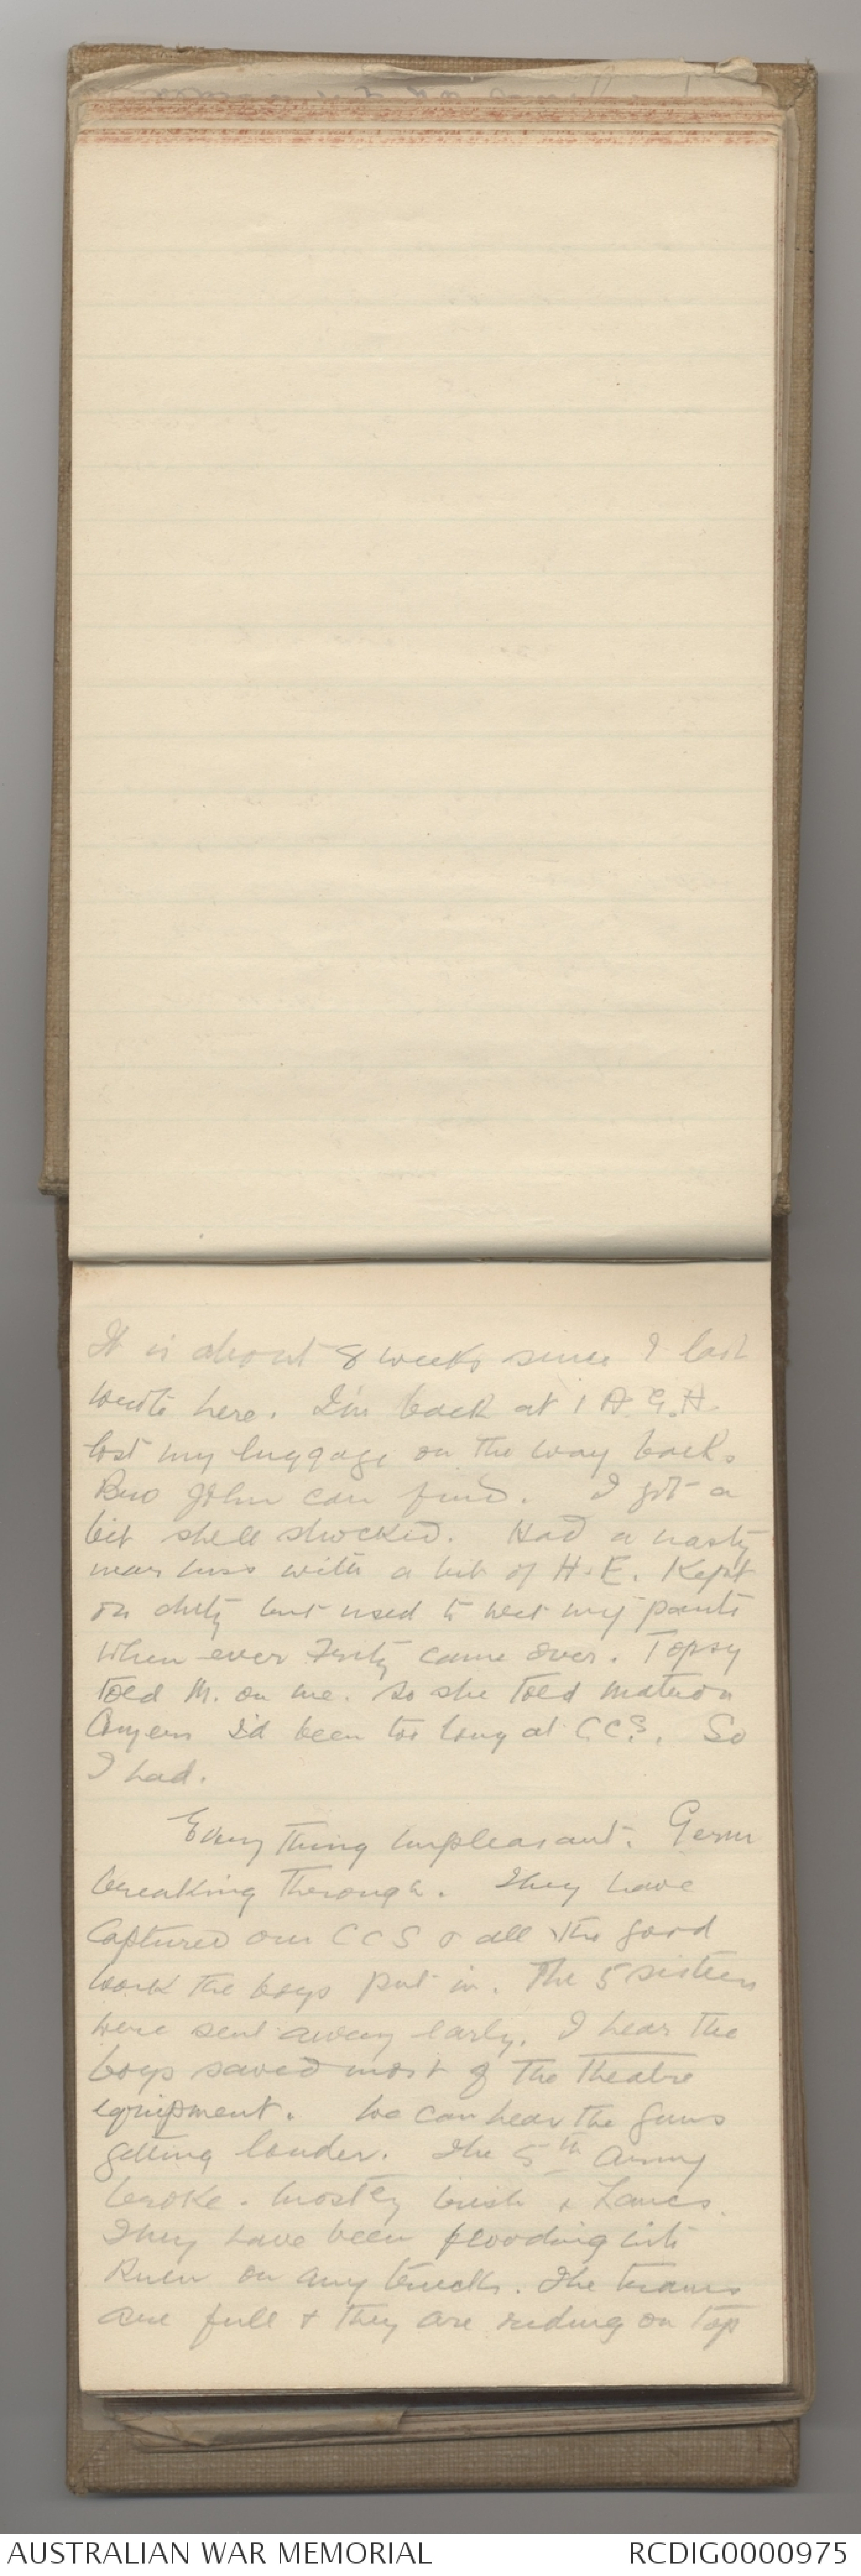 It is about 8 weeks since I last
wrote here. I'm back at 1 A.G.H.
lost my luggage on the way back.
Bro John can find. I got a
bit shell shocked. Had a nasty
near miss with a bit of H.E. Kept
on duty but used to wet my pants
when ever Fritz came over. Topsy
told M. on me. So she told matron
I'd been too long at CCS. So
I had.
Every thing unpleasant. Germ
breaking through. They have
captured our CCS & all the good
work the boys put in. The 5 sisters
were sent away early. I hear the
boys saved most of the theatre
equipment. We can hear the guns
getting louder. The 5th Army
broke. mostly Irish & Lancs.
They have been flooding into
Ruen on any trucks. The trams
are full & they are riding on top
AUSTRALIAN WAR MEMORIAL
RCDIG0000975